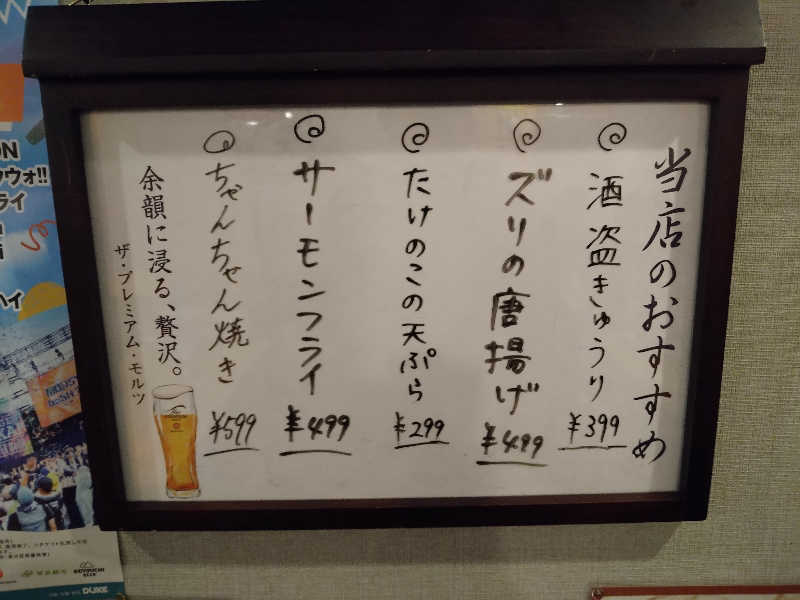 当店のおすすめ
酒盗きゅうり
¥399
ズリの唐揚げ
¥499
たけのこの天ぷら
¥299
サーモンフライ
¥499
ちゃんちゃん焼き
¥599
余韻に浸る、贅沢。
ザ・プレミアム・モルツ
DUKE